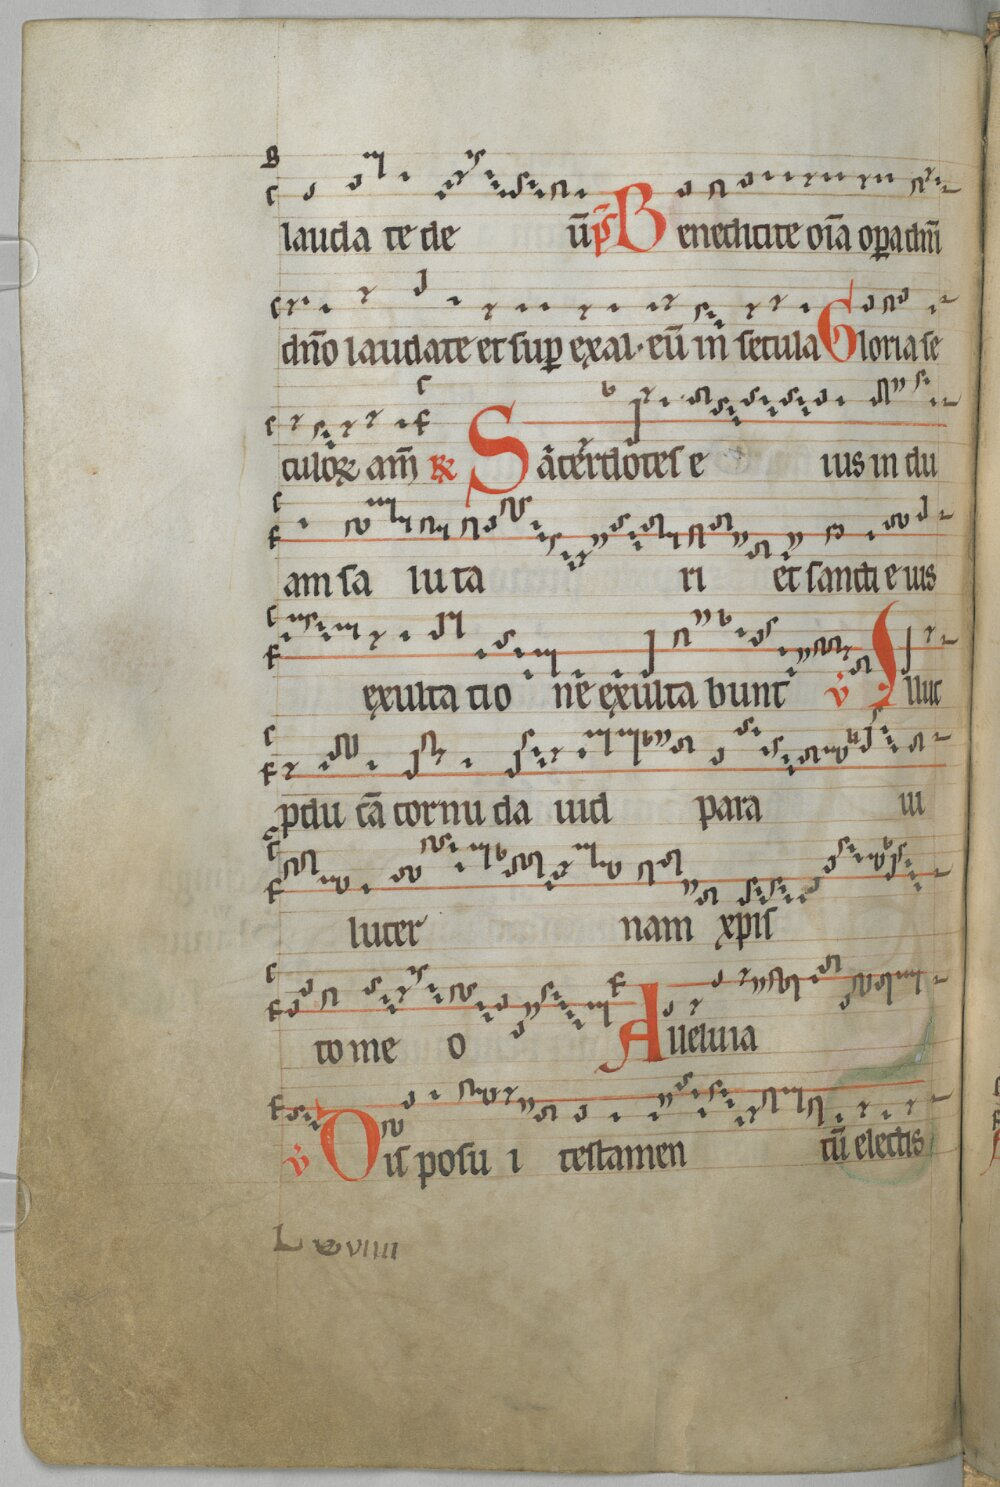 lauda te de ũ p̃s Benedicite oīa oꝑa dñi
dño laudate et suꝑ exal. eũ in secula Gloria se
culoꝝ am̃ ℟ Sācerdotes e ius in du
am sa lu ta ri et sancti e ius
exulta tio ne exulta bunt v̄ Illuc
ꝓdu cā cornu da uid para ui
lucer nam xpis
to me o Alleluia
v̄ Disposu i testamen tū electis
Lxviiii